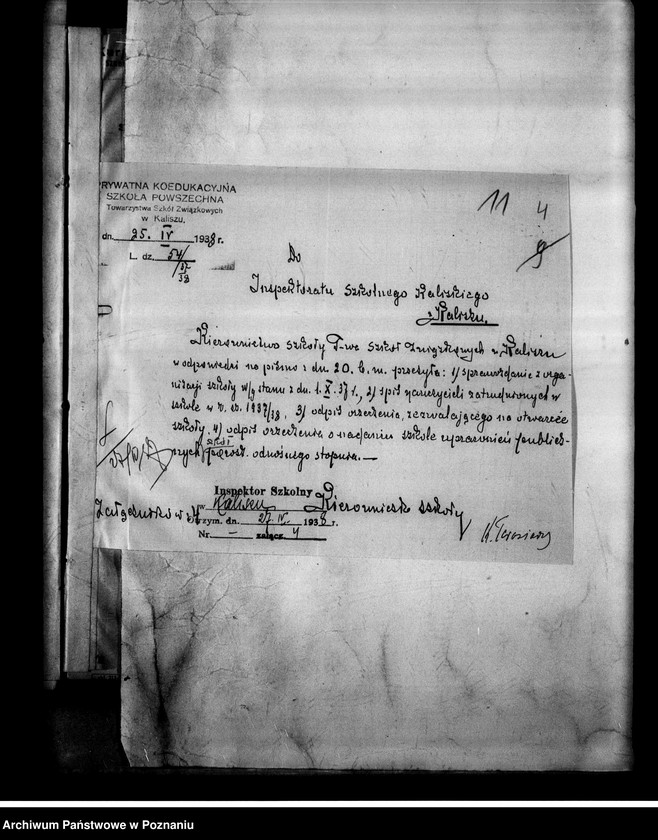 PRYWATNA KOEDUKACYJNA
SZKOŁA POWSZECHNA
Towarzystwa Szkół Związkowych
w Kaliszu,
dn. 25. IV 1938 r.
L. dz. 54/
/37/38
11 4
9
Do
Inspektoratu Szkolnego Kaliskiego
w Kaliszu.
Kierownictwo szkoły T-wa Szkół Związkowych w Kaliszu
w odpowiedzi na pismo z dn. 20. b. m. przesyła: 1) sprawozdanie z orga-
nizacji szkoły w/g stanu z dn. 1. X. 37 r., 2) spis nauczycieli zatrudnionych w
szkole w r. sz. 1937/38, 3) odpis orzeczenia, zezwalającego na otwarcie
szkoły, 4) odpis orzeczenia o nadaniu szkole uprawnień publicz-
nych szkół powsz. odnośnego stopnia. —
Załączników 4
Inspektor Szkolny
w Kaliszu
Otrzym. dn. 27. IV. 1938 r.
Nr. — załącz. 4
Kierownictwo szkoły